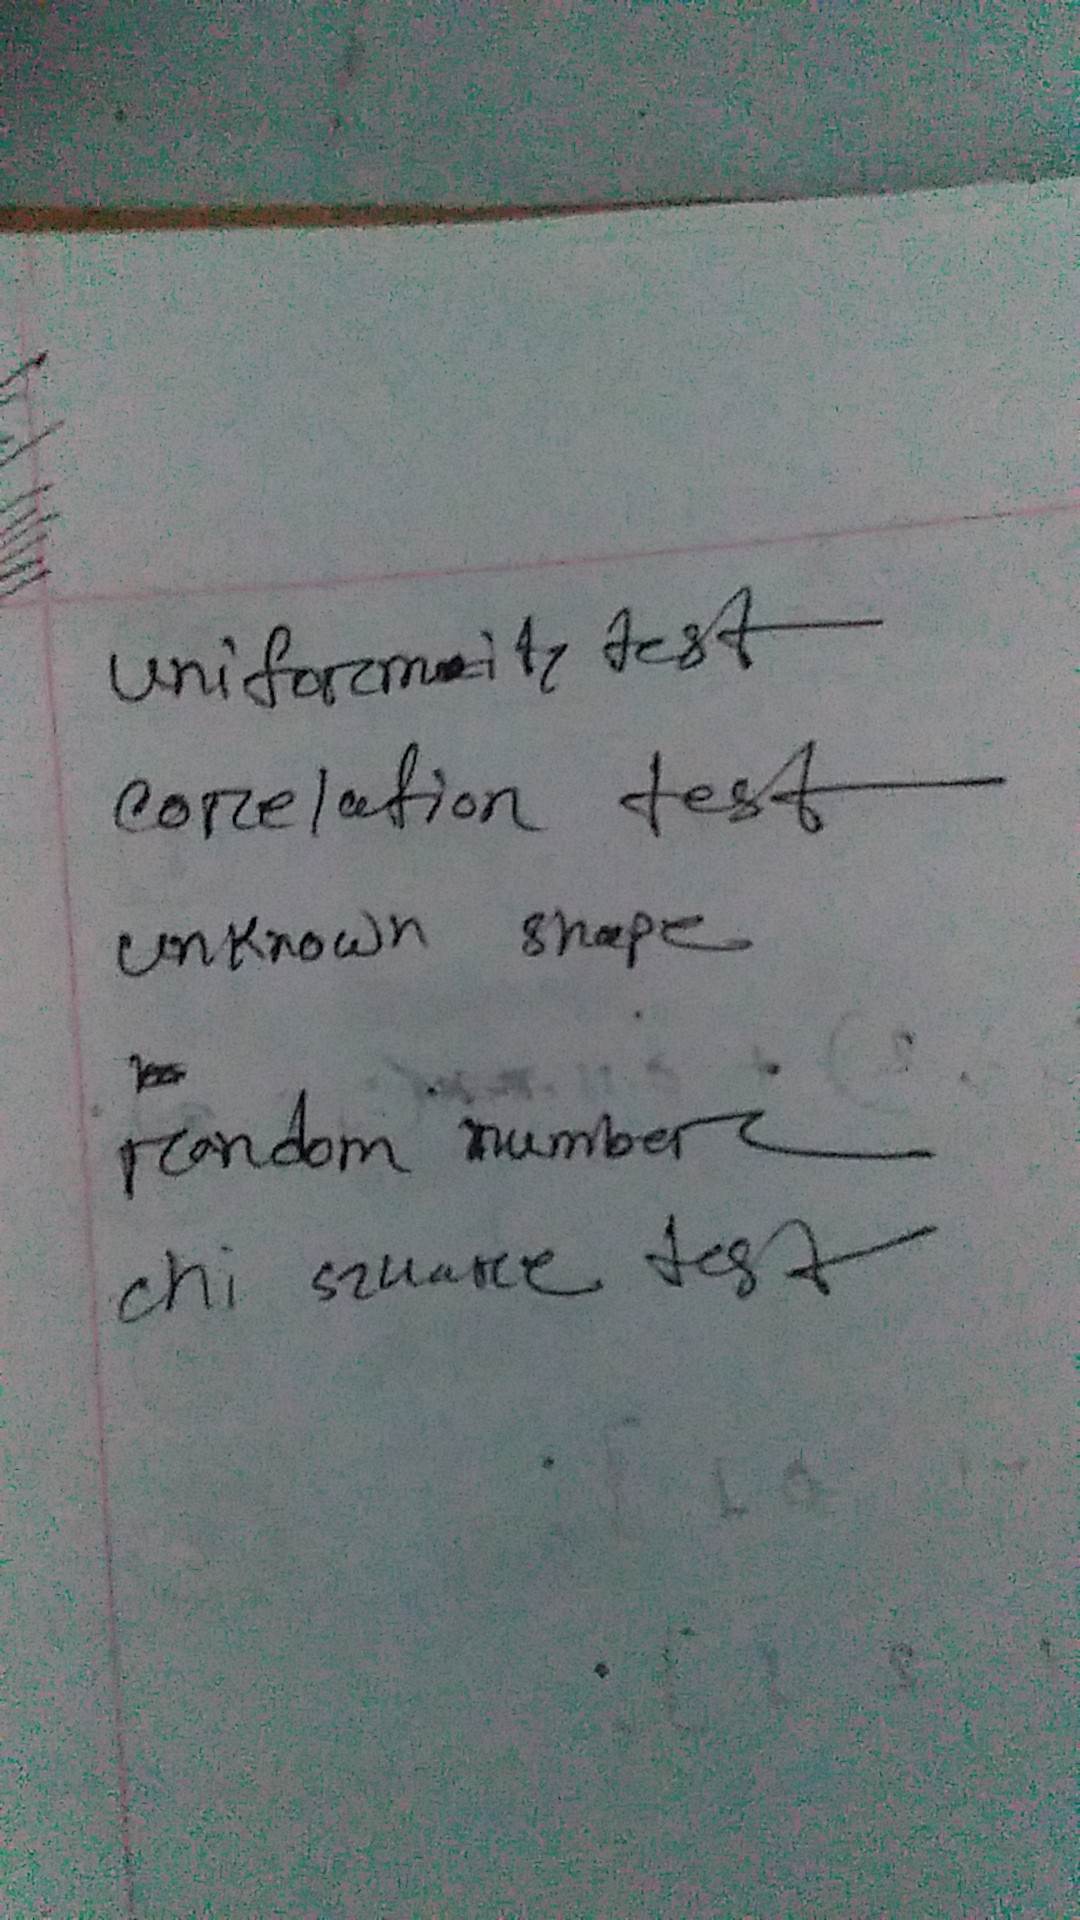 uniformity test
correlation test
unknown shape
random number
chi square test